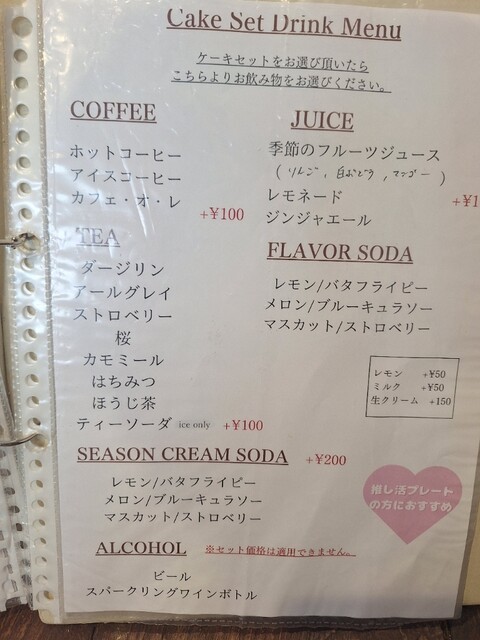 Cake Set Drink Menu
ケーキセットをお選び頂いたら
こちらよりお飲み物をお選びください。
COFFEE
ホットコーヒー
アイスコーヒー
カフェ・オ・レ +¥100
TEA
ダージリン
アールグレイ
ストロベリー
桜
カモミール
はちみつ
ほうじ茶
ティーソーダ ice only +¥100
JUICE
季節のフルーツジュース
(りんご, 白ぶどう, マンゴー)
レモネード +¥1
ジンジャエール
FLAVOR SODA
レモン/バタフライピー
メロン/ブルーキュラソー
マスカット/ストロベリー
レモン +¥50
ミルク +¥50
生クリーム +150
SEASON CREAM SODA +¥200
レモン/バタフライピー
メロン/ブルーキュラソー
マスカット/ストロベリー
推し活プレート
の方におすすめ
ALCOHOL ※セット価格は適用できません。
ビール
スパークリングワインボトル